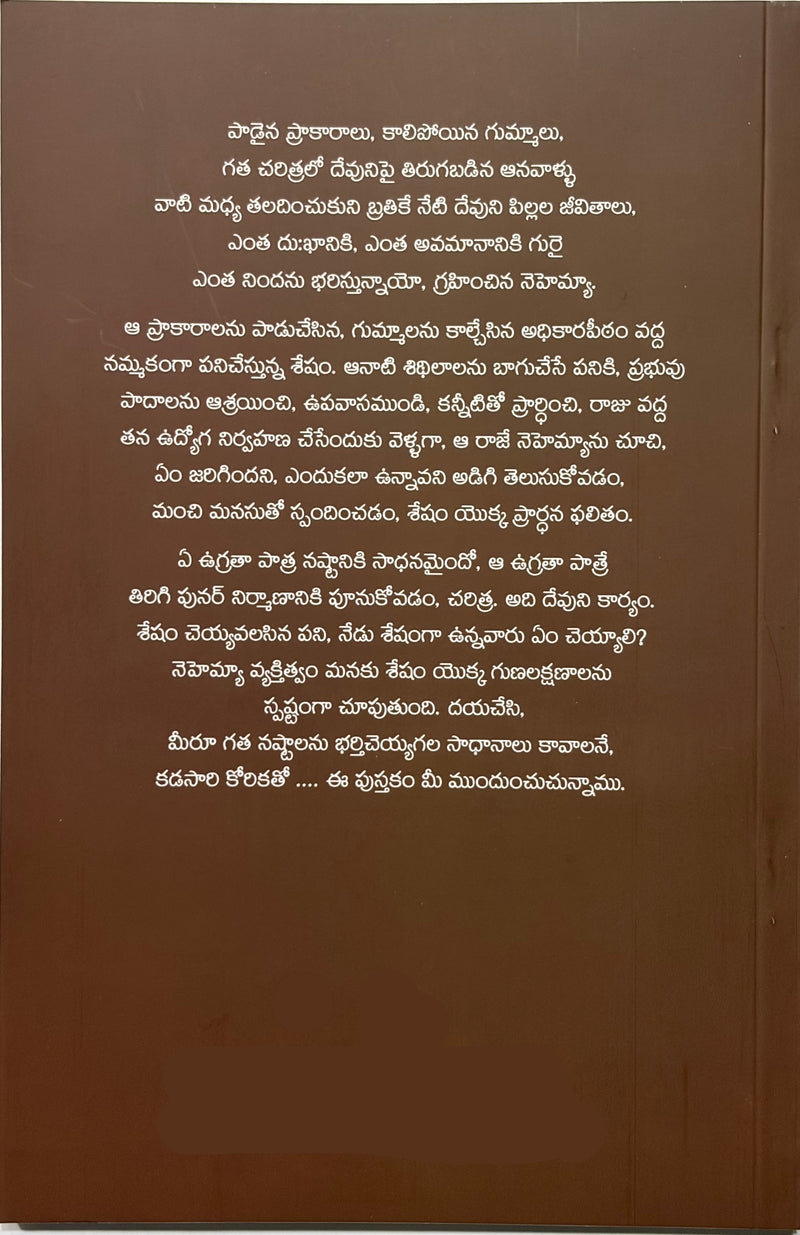 పాడైన ప్రాకారాలు, కాలిపోయిన గుమ్మాలు,
గత చరిత్రలో దేవునిపై తిరుగబడిన ఆనవాళ్ళు
వాటి మధ్య తలదించుకుని బ్రతికే నేటి దేవుని పిల్లల జీవితాలు,
ఎంత దు:ఖానికి, ఎంత అవమానానికి గురై
ఎంత నిందను భరిస్తున్నాయో, గ్రహించిన నెహెమ్యా.
ఆ ప్రాకారాలను పాడుచేసిన, గుమ్మాలను కాల్చేసిన అధికారపీఠం వద్ద
నమ్మకంగా పనిచేస్తున్న శేషం. ఆనాటి శిథిలాలను బాగుచేసే పనికి, ప్రభువు
పాదాలను ఆశ్రయించి, ఉపవాసముండి, కన్నీటితో ప్రార్ధించి, రాజు వద్ద
తన ఉద్యోగ నిర్వహణ చేసేందుకు వెళ్ళగా, ఆ రాజే నెహెమ్యాను చూచి,
ఏం జరిగిందని, ఎందుకలా ఉన్నావని అడిగి తెలుసుకోవడం,
మంచి మనసుతో స్పందించడం, శేషం యొక్క ప్రార్ధన ఫలితం.
ఏ ఉగ్రతా పాత్ర నష్టానికి సాధనమైందో, ఆ ఉగ్రతా పాత్రే
తిరిగి పునర్ నిర్మాణానికి పూనుకోవడం, చరిత్ర. అది దేవుని కార్యం.
శేషం చెయ్యవలసిన పని, నేడు శేషంగా ఉన్నవారు ఏం చెయ్యాలి?
నెహెమ్యా వ్యక్తిత్వం మనకు శేషం యొక్క గుణలక్షణాలను
స్పష్టంగా చూపుతుంది. దయచేసి,
మీరూ గత నష్టాలను భర్తిచెయ్యగల సాధానాలు కావాలనే,
కడసారి కోరికతో .... ఈ పుస్తకం మీ ముందుంచుచున్నాము.